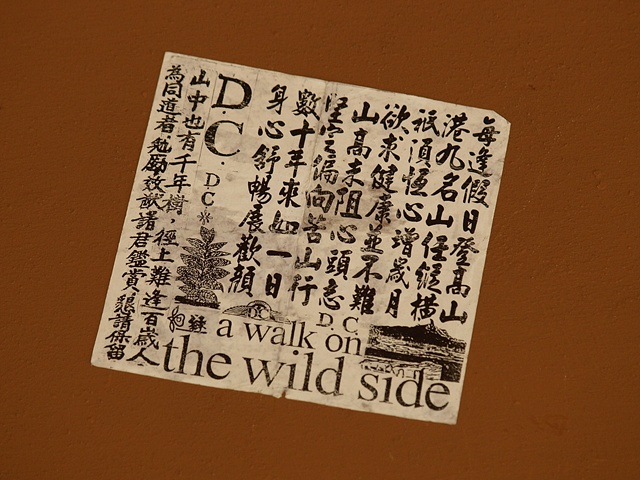 每逢假日登高山
港九名山任縱橫
祇須恆心增歲月
欲求健康並不難
山高未阻心頭志
堅定偏向苦山行
數十年來如一日
身心舒暢展歡顏
D
C
D
C
山中也有千年樹，徑上難逢百歲人
為同道者勉勵效猷諸君鑑賞懇請保留
D C
a walk on
the wild side